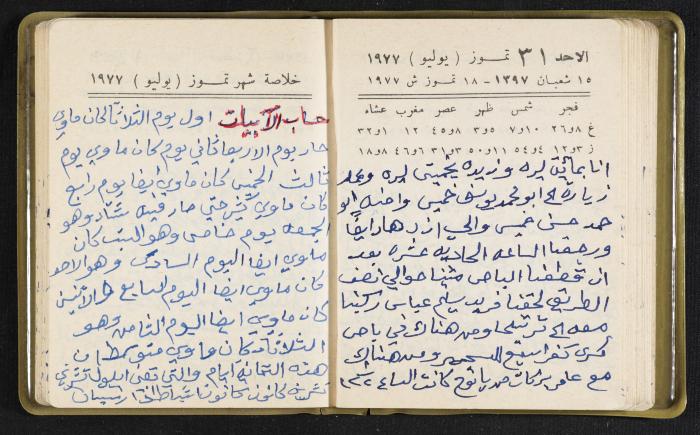 الاحد ٣١ تموز ( يوليو ) ١٩٧٧
١٥ شعبان ١٣٩٧ - ١٨ تموز ش ١٩٧٧
فجر شمس ظهر عصر مغرب عشاء
غ ٨و٢٦ ١٠و٧ ٥و٣ ٨و٤٥ ١٢ ١و٣٢
ز ٣و١٢ ٤و٥٤ ١١و٥٠ ٣و٣١ ٦و٤٦ ٨و١٨
انا بمائة ليره وزيده بخمسين ليره وبعد
زيارة ابو محمد يوسف خميس واخته ابو
حمد حسن خميس والحج ايضا
ورجعنا الساعه الحاديه عشره بعد
ان قطعنا الباص مشينا حوالي نصف
الطريق لحقنا فريد سليم عباس ركبنا
معه الى ترشيحا ومن هناك في باص
كفر سميع ومن هناك
مع عامر بركات كانت الساعه
خلاصة شهر تموز ( يوليو ) ١٩٧٧
حساب الآبيات اول يوم الثلاثاء كان ماوي
حار يوم الاربعا ثاني يوم كان ماوي يوم
ثالث الخميس كان ماوي أيضا يوم رابع
كان ماوي حتى صار فيه شتاء وهو
الجمعه يوم خامس وهو السبت كان
ماوي ايضا اليوم السادس وهو الاحد
كان ماوي ايضا اليوم السابع الاثنين
كان ماوي ايضا اليوم الثامن وهو
الثلاثاء كان ماوي متوسط
هذه الثمانيه ايام والتي تعني ايلول تشرين
تشرين كانون كانون شباط اذار نيسان